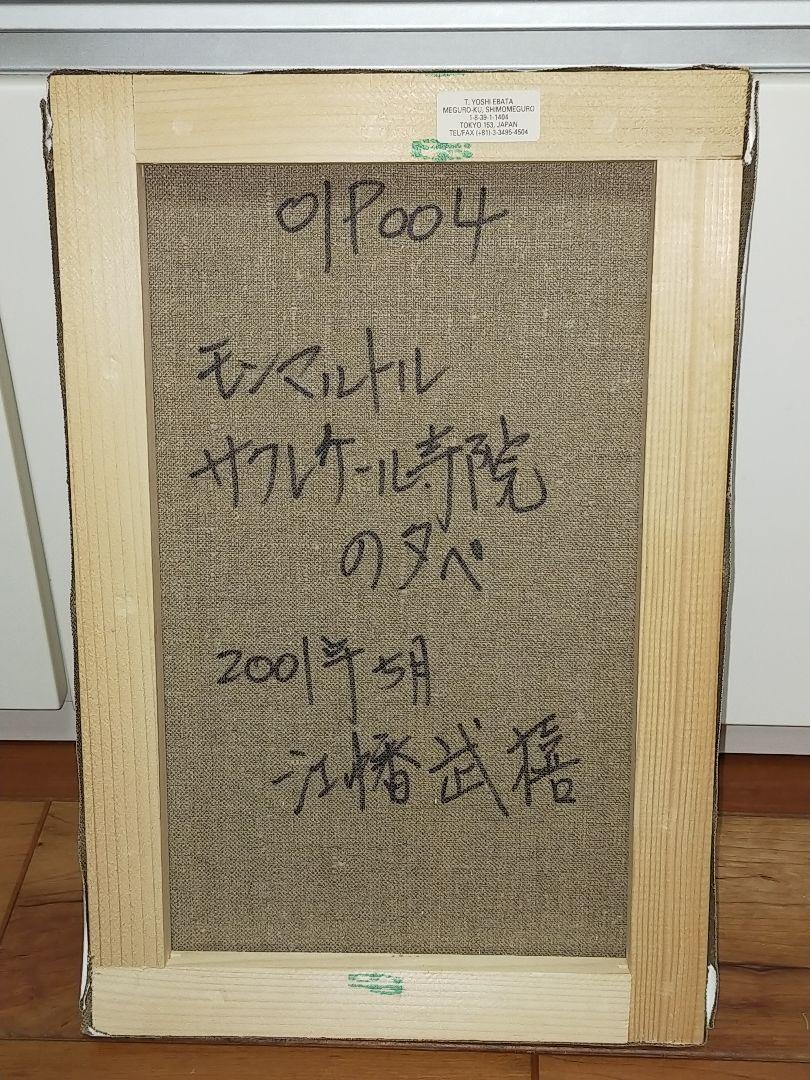 T. YOSHI EBATA
MEGURO-KU, SHIMOMEGURO
1-8-39-1-1404
TOKYO 153, JAPAN
TEL/FAX (+81)-3-3495-4504
01P004
モンマルトル
サクレケール寺院
の夕べ
2001年5月
江幡武禧